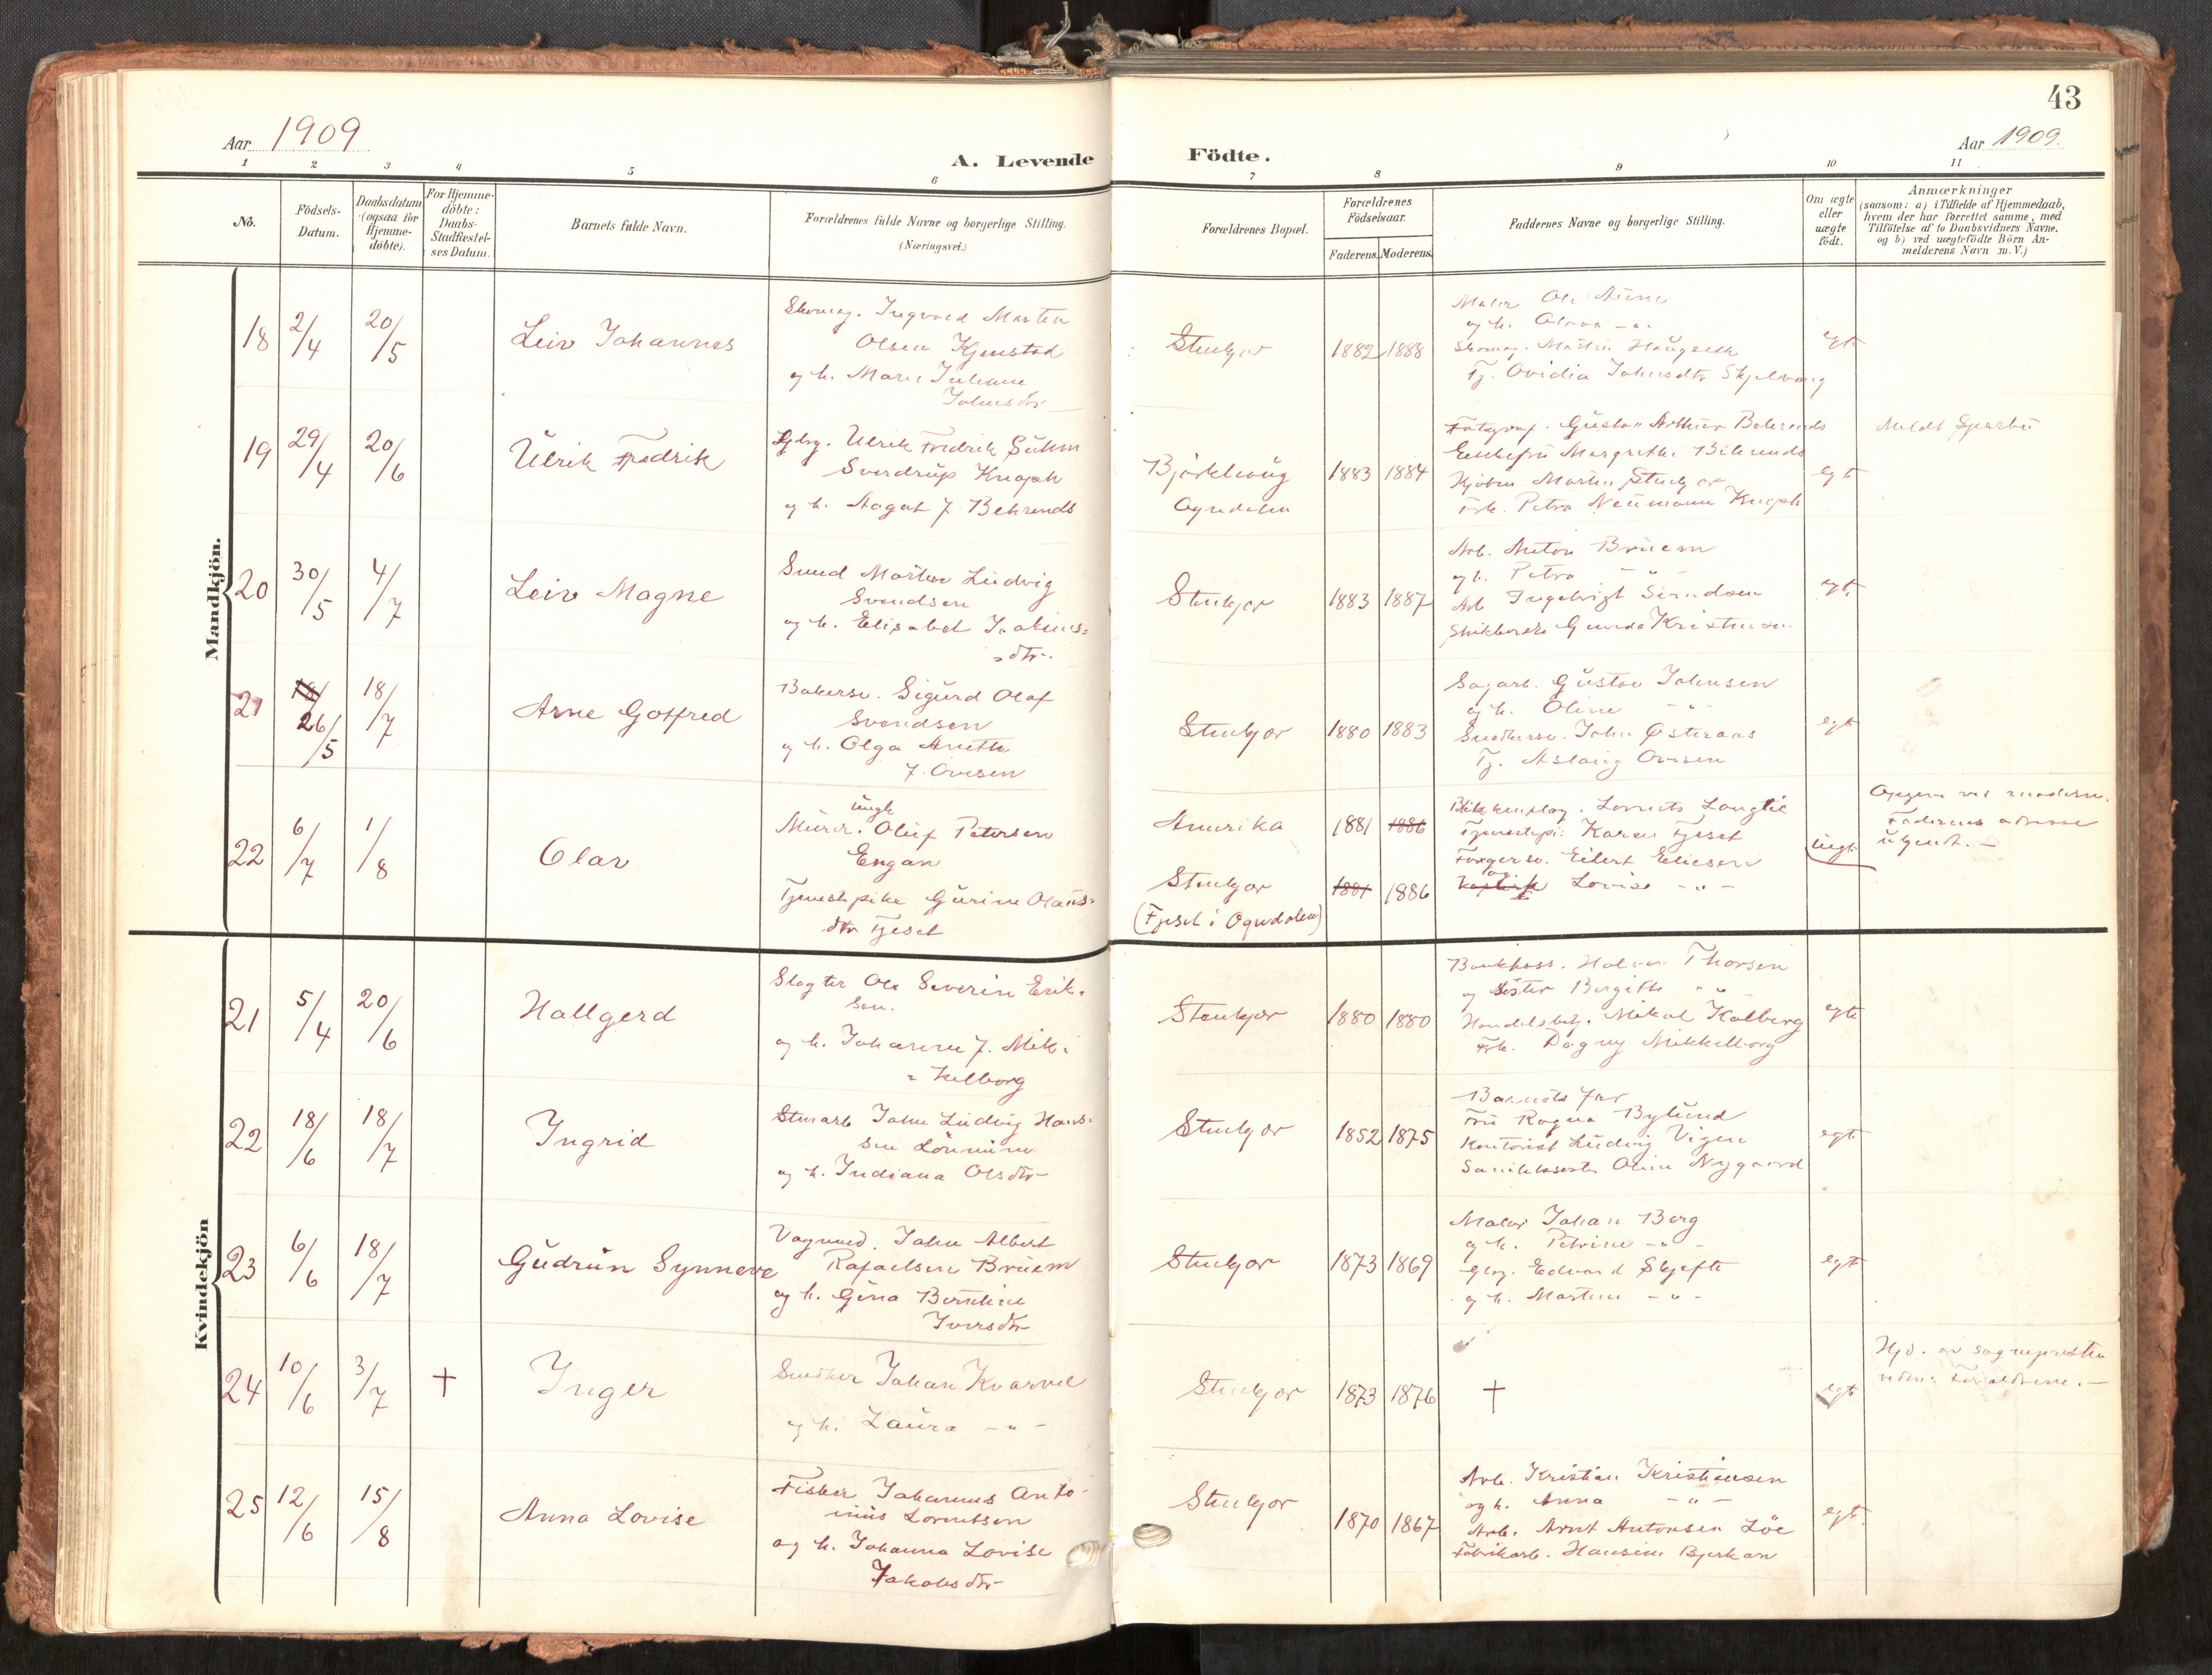 43
Aar 1909
Aar 1909.
A. Levende Födte.
1 2 3 4 5 6 7 8 9 10 11
No.
Födsels-
Datum.
Daabsdatum
(ogsaa for
Hjemme-
döbte).
For Hjemme-
döbte:
Daabs-
Stadfæstel-
ses Datum.
Barnets fulde Navn.
Forældrenes fulde Navne og borgerlige Stilling.
(Næringsvei.)
Forældrenes Bopæl.
Forældrenes
Födselsaar.
Faderens. Moderens.
Faddernes Navne og borgerlige Stilling.
Om ægte
eller
uægte
födt.
Anmærkninger
(saasom: a) i Tilfælde af Hjemmedaab,
hvem der har forrettet samme, med
Tilföielse af to Daabsvidners Navne,
og b) ved uægtefödte Börn An-
melderens Navn m.V.)
Mandkjön.
18 2/4 20/5 Leiv Johannes
Skomag. Ingvald Martin
Olsen Kjenstad
og h. Marie Juliane
Johnsdtr
Stenkjær 1882 1888
Maler Ole Aune
og h. Olava -"-
Skomag. Martin Haugseth
Tj. Ovidia Johnsdtr Skjelvaag
egt
19 29/4 20/6 Ulrik Fredrik
Gbrg. Ulrik Fredrik Suhm
Sverdrup Knoph
og h. Aagot f. Behrends
Bjørkhaug
Ogndalen
1883 1884
Fotograf. Gustav Arthur Behrends
Enkefru Margrethe Behrends
Kjöbm. Martin Stenkjær
Frk. Petra Neumann Knoph
egt
Meldt Sparbu
20 30/5 4/7 Leiv Magne
Smed Martin Ludvig
Svendsen
og h. Elisabet Joakims=
=dtr.
Stenkjær 1883 1887
Arb. Anton Bruem
og h. Petra -"-
Arb. Ingebrigt
Gunda Kristensen
egt.
21 26/5 18/7 Arne Gotfred
Bakersv. Sigurd Olaf
Svendsen
og h. Olga Anette
f. Ovesen
Stenkjær 1880 1883
Sagarb. Gustav Johnsen
og h. Oline -"-
Snedkersv. John Østeraas
Tj. Aslaug Ovesen
egt
22 6/7 1/8 Olav
ungk
Murer. Oluf Petersen
Engan
Tjenestepike Gurine Olaus=
dtr Fjeset
Amerika 1881 1886
Stenkjær 1881 1886
(Fjeset i Ogndalen)
Blikkenslag. Lorents Langlie
Tjenestepi: Karen Fjeset
Eilert Eliesen
og Lovise -"-
uegt
Opgiven ved moderen.
Faderens adresse
ukjent. -
Kvindekjön
21 5/4 20/6 Hallgerd
Slagter Ole Severin Erik-
sen.
og h. Johanne f. Mik=
=kelborg
Stenkjær 1880 1880
Bankkass. Halvor Thorsen
og søster Bergitte -"-
Handelsbetj. Mikal Kolberg
Frk. Dagny Mikkelborg
egte
22 18/6 18/7 Ingrid
Stenarb John Ludvig Hans=
sen Lönnum
og h. Indiana Olsdtr
Stenkjær 1852 1875
Barnets far
Fru Ragna Bylund
Kontorist Ludvig Vigen
Oline Nygaard
egt.
23 6/6 18/7 Gudrun Synneve
Vognmd. John Albert
Rafaelsen Bruem
og h. Gina Berntine
Iversdtr
Stenkjær 1873 1869
Maler Johan Berg
og h. Petrine -"-
Gbrg. Edvard Skjefte
og h. Martine -"-
egt
24 10/6 3/7 + Inger
Snedker Johan Kvarvel
og h. Laura -"-
Stenkjær 1873 1876 +
egt
Hjd. av sogneprestin
vidn: Forældrene. -
25 12/6 15/8 Anna Lovise
Fisker Johannes Anto-
nius Lorentsen
og h. Johanna Lovise
Jakobsdtr
Stenkjær 1870 1867
Arb. Kristian Kristiansen
og h. Anna -"-
Arb. Arnt Antonsen Löe
Fabrikarb. Hansine Bjerkan
egt.